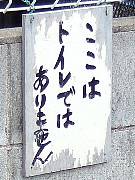 ここは
トイレでは
ありません